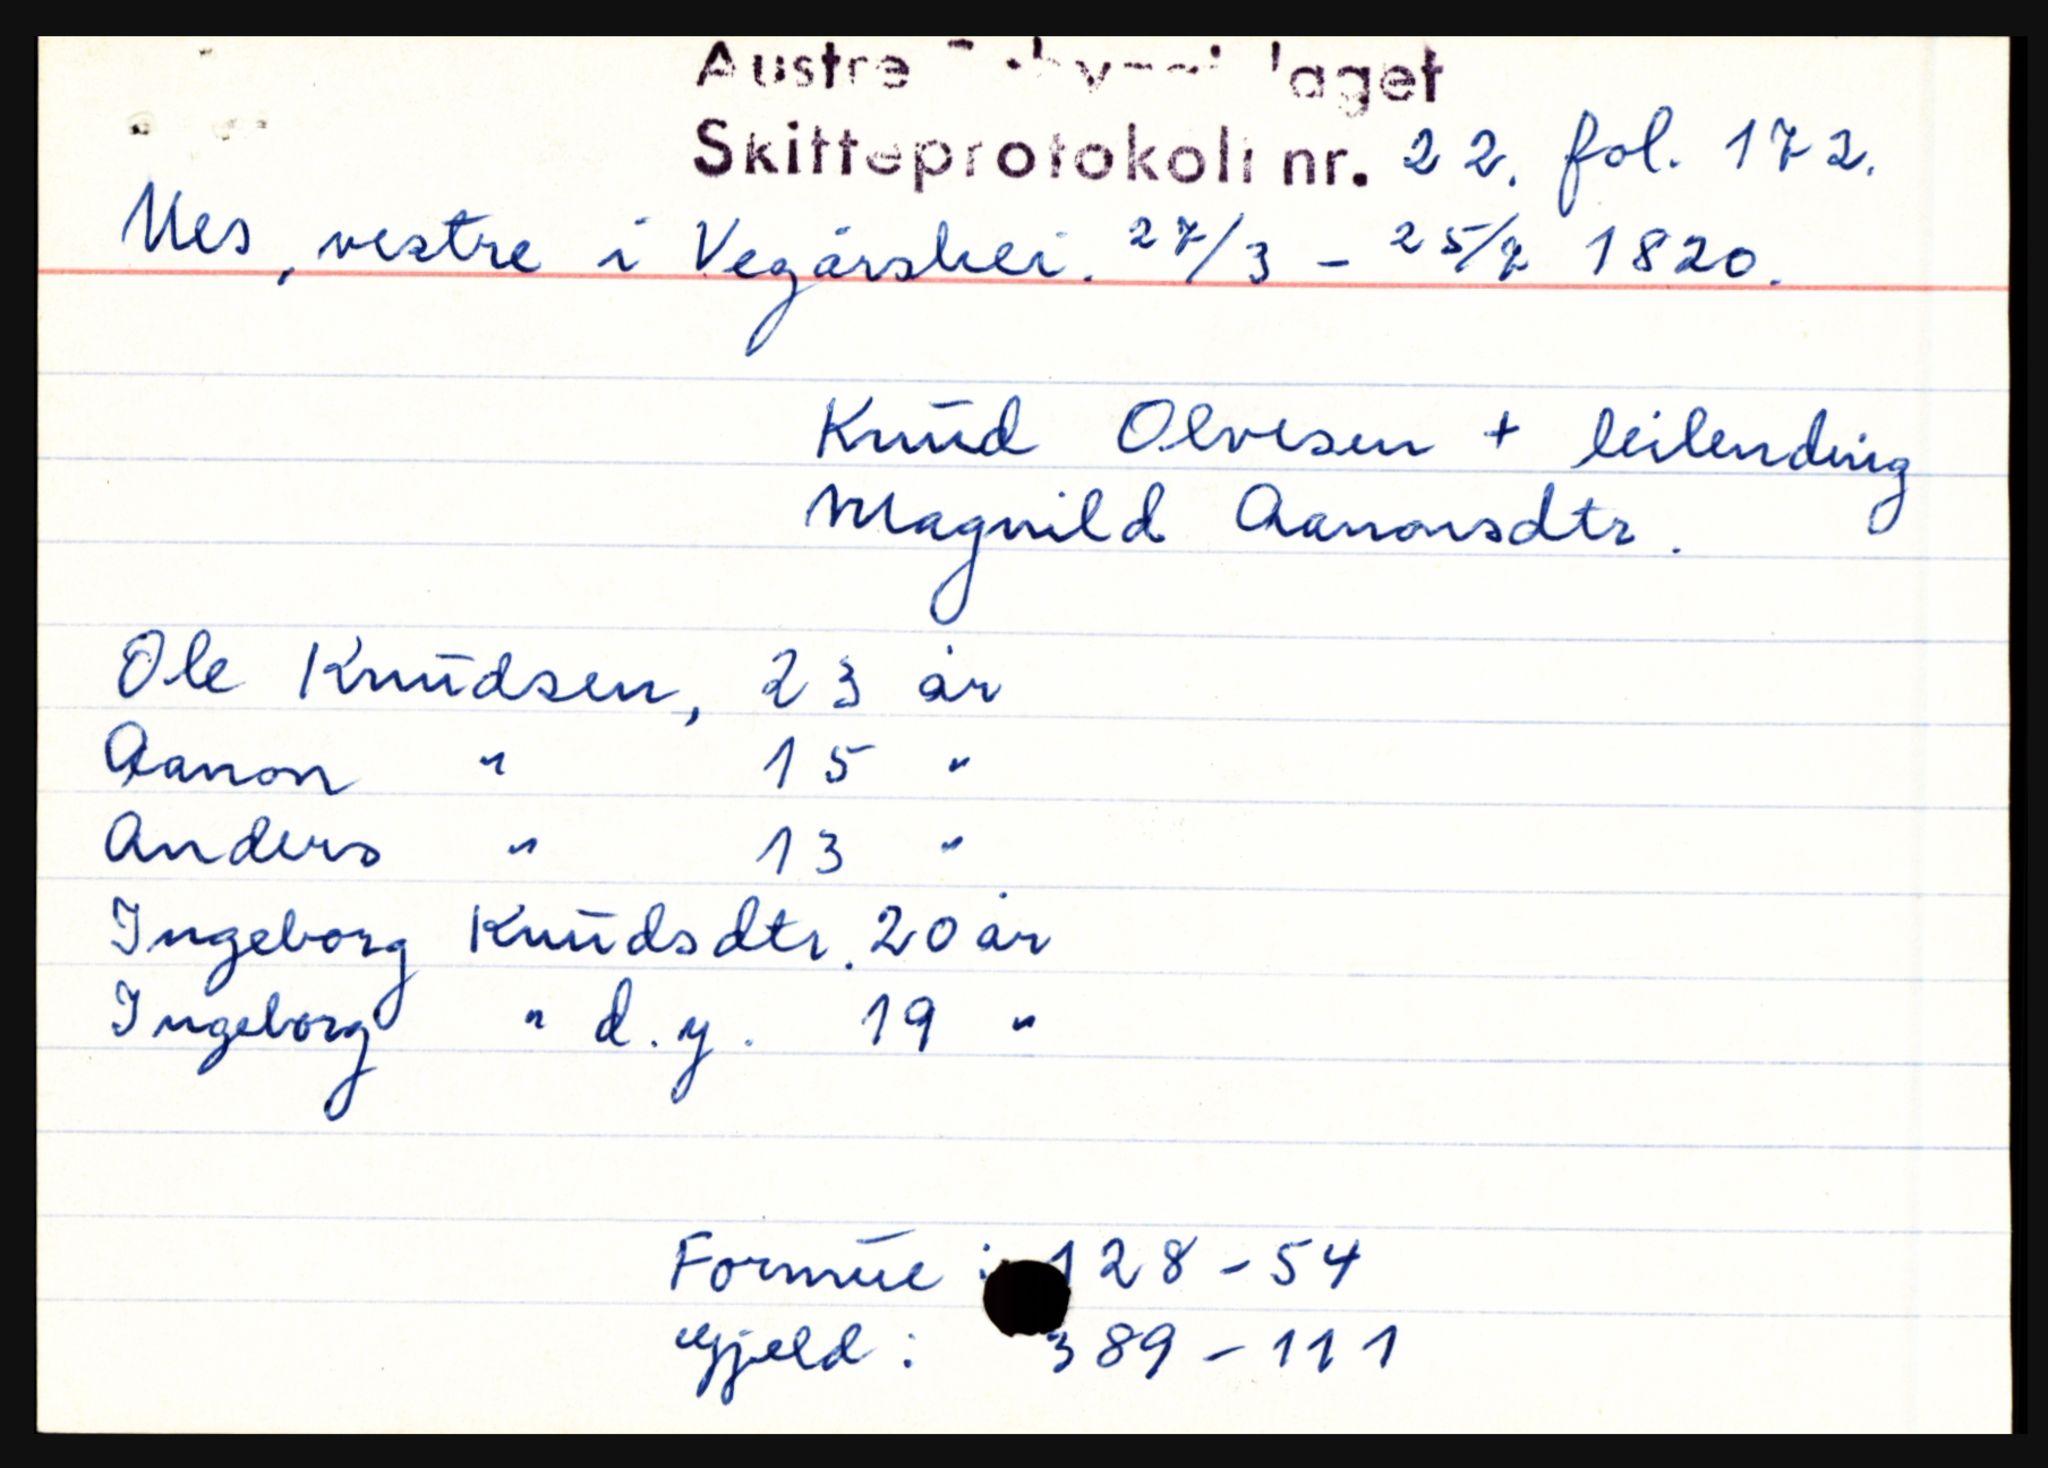 Austre laget
Skifteprotokoll nr. 22. fol. 172.
Nes, vestre i Vegårshei. 27/3 - 25/7 1820.
Knud Olvesen + leilending
Magnild Aanonsdtr.
Ole Knudsen, 23 år
Aanon " 15 "
Anders " 13 "
Ingeborg Knudsdtr. 20 år
Ingeborg " d.y. 19 "
Formue : 128-54
Gjeld : 389-111